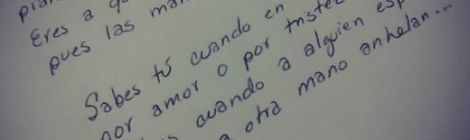 Eres a
pues las
Sabes tú cuando en
por amor o por
cuando a alguien
otra mano anhelan...